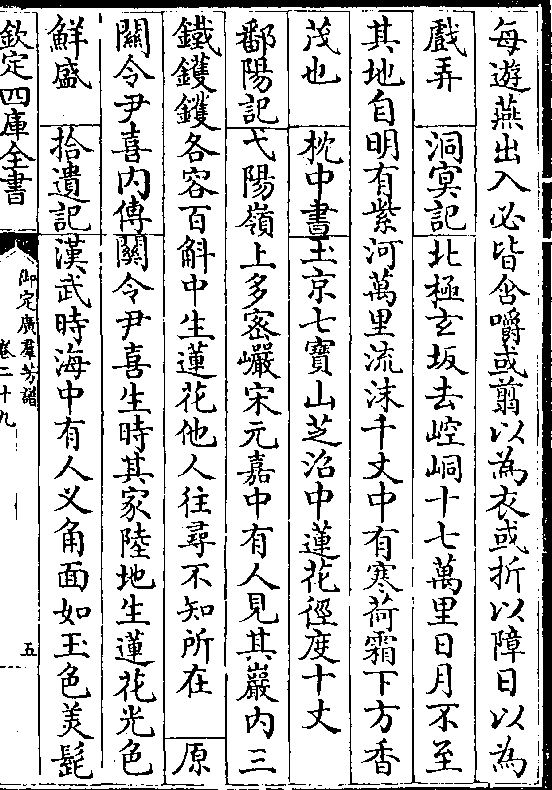 每遊燕出入必皆含嚼或翦以為衣或折以障日以為
戲弄　洞㝠記北極玄坂去崆峒十七萬里日月不至
其地自明有紫河萬里流沫千丈中有寒荷霜下方香
茂也　枕中書玉京七寳山芝沼中蓮花徑度十丈
鄱陽記弋陽嶺上多宻巗宋元嘉中有人見其巖内三
鐵鑊鑊各容百斛中生蓮花他人往尋不知所在　原
闗令尹喜内傳闗令尹喜生時其家陸地生蓮花光色
鮮盛　拾遺記漢武時海中有人乂角面如玉色美髭
欽定四庫全書
御定廣羣芳譜
卷二十九
五